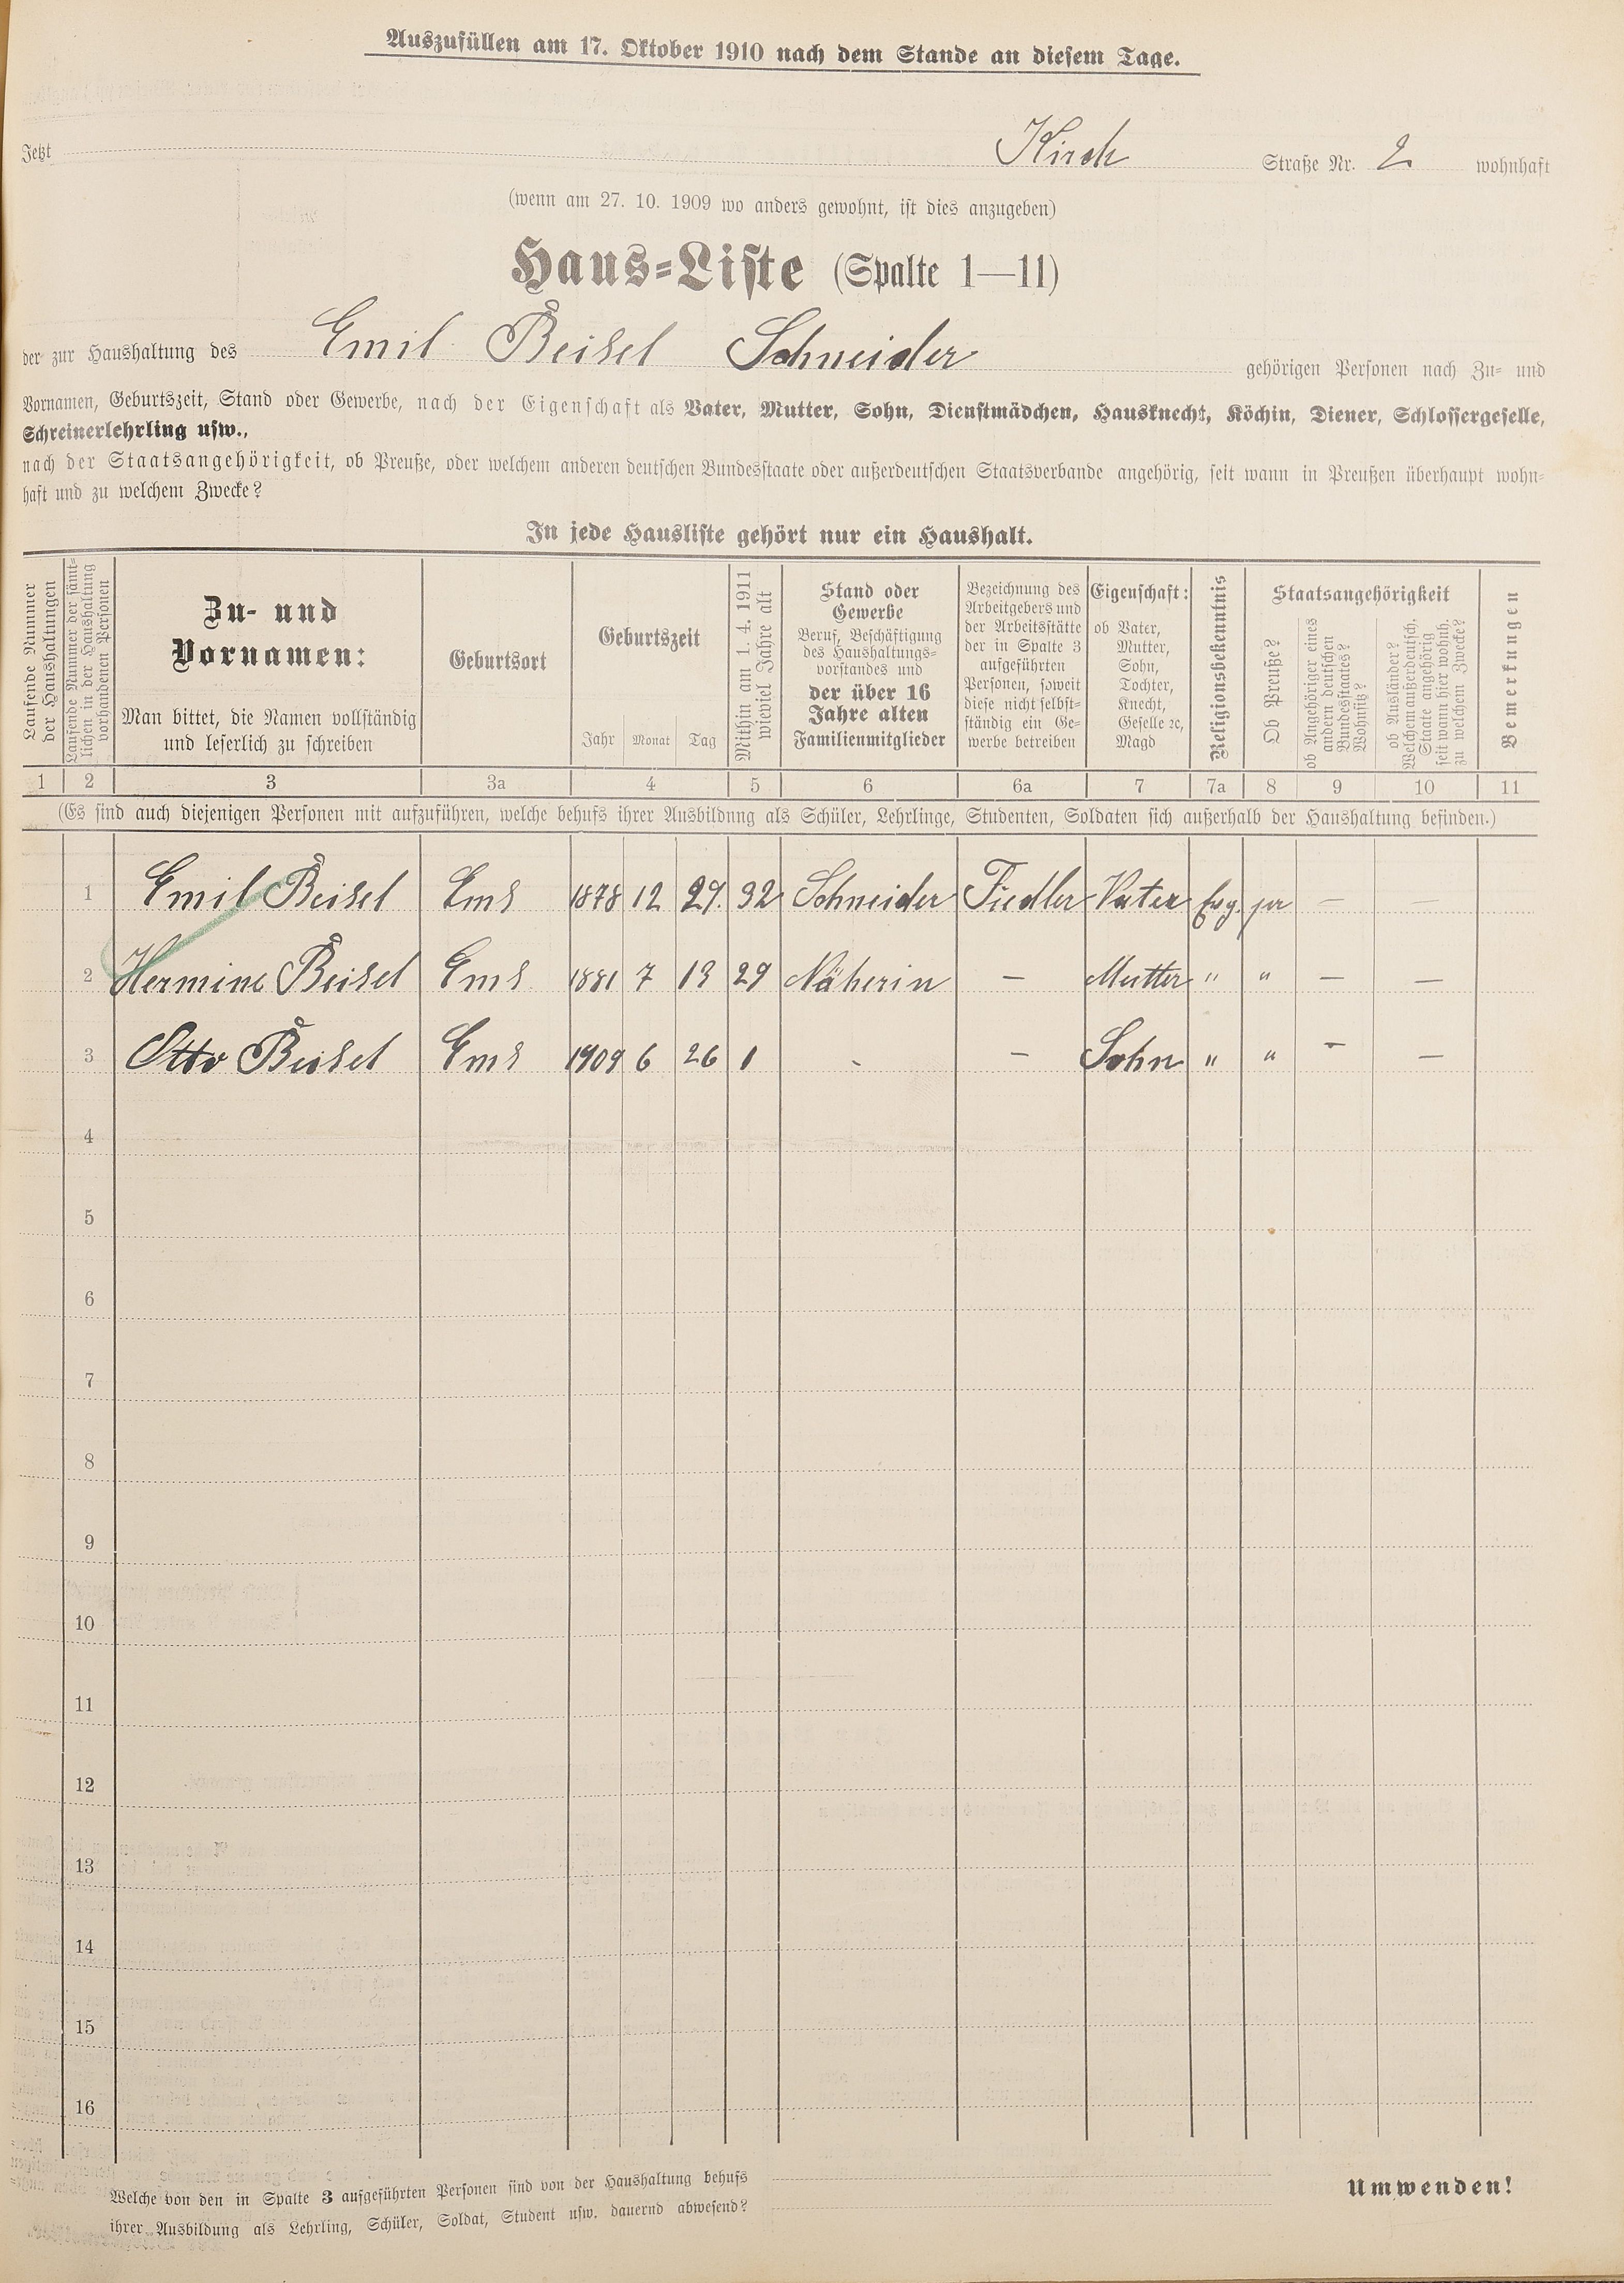 Auszufüllen am 17. Oktober 1910 nach dem Stande an diesem Tage.
Jetzt Kirch Straße Nr. 2 wohnhaft
(wenn am 27. 10. 1909 wo anders gewohnt, ist dies anzugeben)
Haus-Liste (Spalte 1—11)
der zur Haushaltung des Emil Beisel Schneider gehörigen Personen nach Zu- und
Vornamen, Geburtszeit, Stand oder Gewerbe, nach der Eigenschaft als Vater, Mutter, Sohn, Dienstmädchen, Hausknecht, Köchin, Diener, Schlossergeselle,
Schreinerlehrling usw.,
nach der Staatsangehörigkeit, ob Preuße, oder welchem anderen deutschen Bundesstaate oder außerdeutschen Staatsverbande angehörig, seit wann in Preußen überhaupt wohn-
haft und zu welchem Zwecke?
In jede Hausliste gehört nur ein Haushalt.
Laufende Nummer
der Haushaltungen
Laufende Nummer der sämt-
lichen in der Haushaltung
vorhandenen Personen
Zu- und
Vornamen:
Man bittet, die Namen vollständig
und leserlich zu schreiben
Geburtsort
Geburtszeit
Jahr Monat Tag
Mithin am 1. 4. 1911
wieviel Jahre alt
Stand oder
Gewerbe
Beruf, Beschäftigung
des Haushaltungs-
vorstandes und
der über 16
Jahre alten
Familienmitglieder
Bezeichnung des
Arbeitgebers und
der Arbeitsstätte
der in Spalte 3
aufgeführten
Personen, soweit
diese nicht selbst-
ständig ein Ge-
werbe betreiben
Eigenschaft:
ob Vater,
Mutter,
Sohn,
Tochter,
Knecht,
Geselle ꝛc,
Magd
Religionsbekenntnis
Staatsangehörigkeit
Ob Preuße?
ob Angehöriger eines
andern deutschen
Bundesstaates?
Wohnsitz?
ob Ausländer?
Welchem außerdeutsch.
Staate angehörig
seit wann hier wohnh.
zu welchem Zwecke?
Bemerkungen
1 2 3 3a 4 5 6 6a 7 7a 8 9 10 11
(Es sind auch diejenigen Personen mit aufzuführen, welche behufs ihrer Ausbildung als Schüler, Lehrlinge, Studenten, Soldaten sich außerhalb der Haushaltung befinden.)
1 Emil Beisel Ems 1878 12 29. 32 Schneider Fiedler Vater Evg. ja — —
2 Hermine Beisel Ems 1881 7 13 29 Näherin — Mutter " " — —
3 Otto Beisel Ems 1909 6 26 1 - — Sohn " " — —
4
5
6
7
8
9
10
11
12
13
14
15
16
Welche von den in Spalte 3 aufgeführten Personen sind von der Haushaltung behufs
ihrer Ausbildung als Lehrling, Schüler, Soldat, Student usw. dauernd abwesend?
Umwenden!